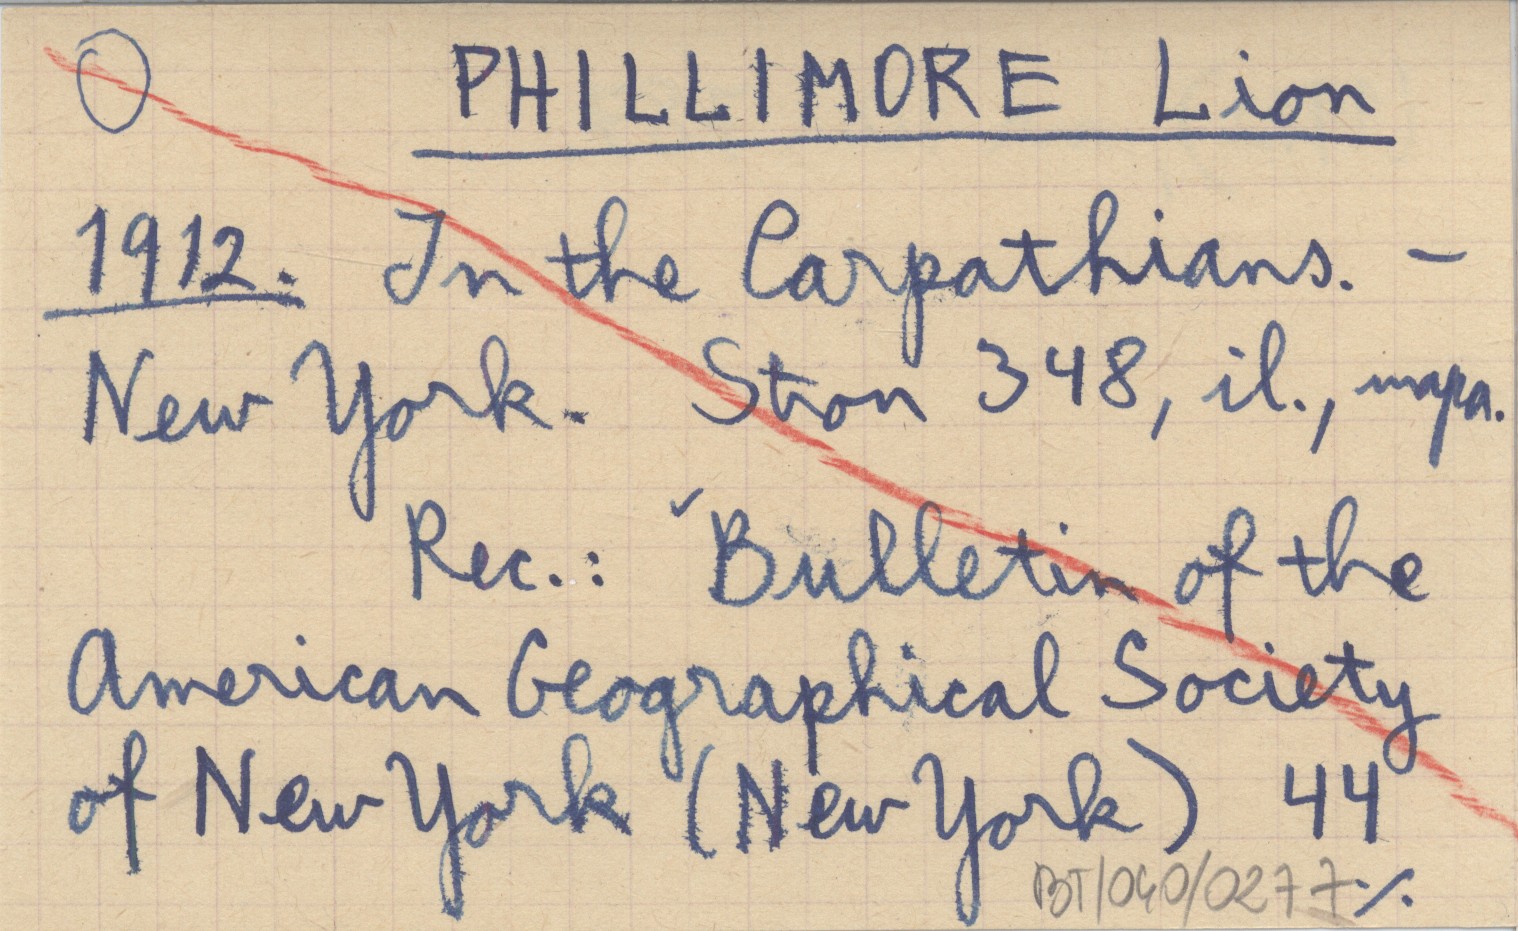 PHILLIMORE Lion
1912. In the Carpathians. –
New York. Stron 348, il., mapa.
Rec.: Bulletin of the
American Geographical Society
of New York (New York) 44
BT/040/0277 ./.